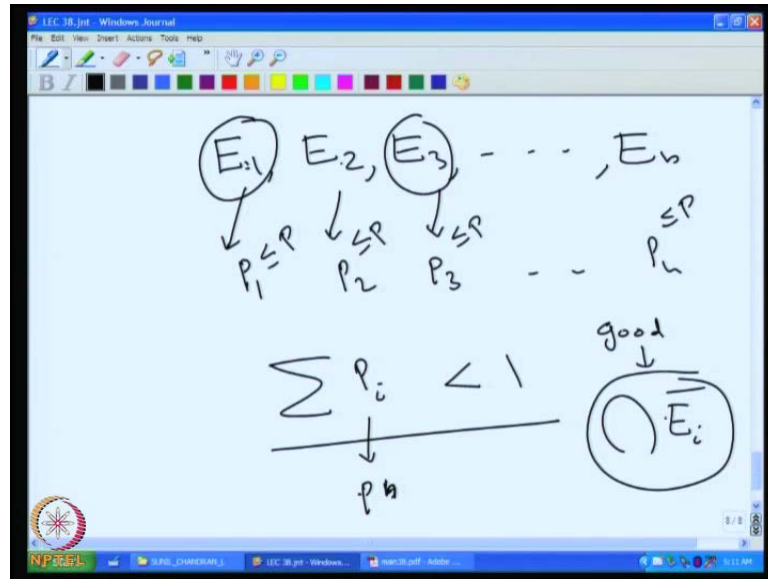 LEC 38.jnt - Windows Journal
File Edit View Insert Actions Tools Help
B I
E1, E2, E3, - - - , En
P1 ≤P P2 ≤P P3 ≤P - - Pn ≤P
good
∑ Pi < 1
⋂ Ēi
pn
8 / 8
NPTEL
SUNIL_CHANDRAN_L
LEC 38.jnt - Windows...
main38.pdf - Adobe ...
5:11 AM